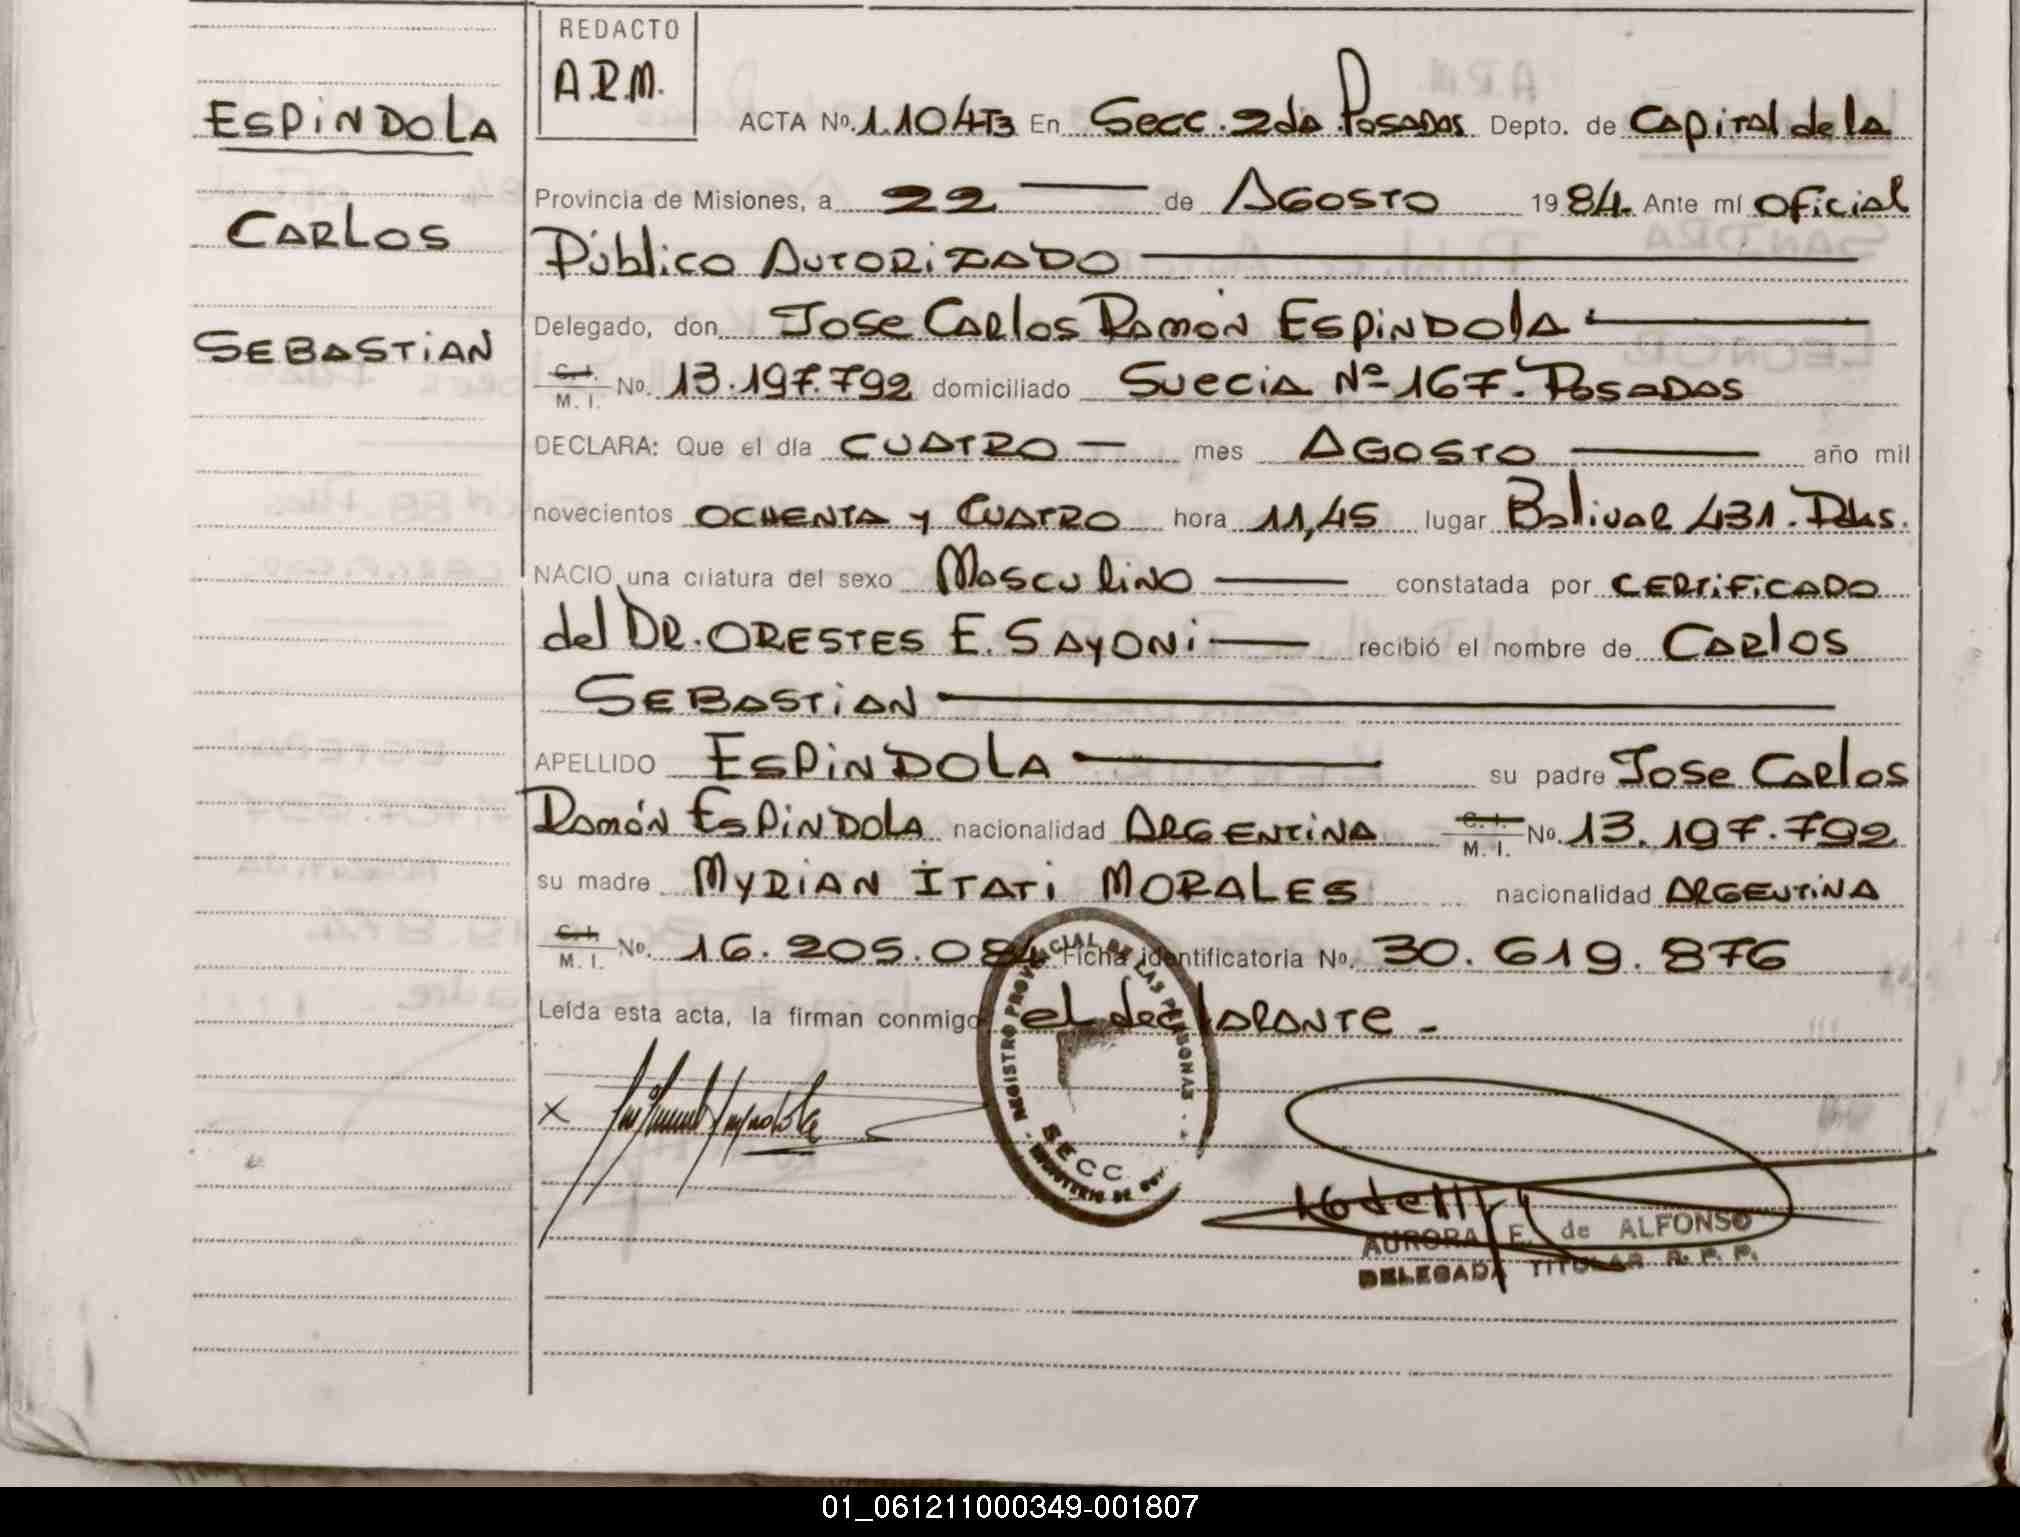 REDACTO
A.R.M.
ESPINDOLA
CARLOS
SEBASTIAN
ACTA No. 1.104T3 En Secc. 2da Posadas Depto. de Capital de la
Provincia de Misiones, a 22 de AGOSTO 1984. Ante mí Oficial
Público Autorizado
Delegado, don Jose Carlos Ramón Espindola
C. I. M. I. No. 13.197.792 domiciliado Suecia Nº 167. Posadas
DECLARA: Que el día CUATRO mes AGOSTO año mil
novecientos OCHENTA y CUATRO hora 11,45 lugar Bolivar 431. Pdas.
NACIO una criatura del sexo Masculino constatada por CERTIFICADO
del DR. ORESTES E. SAYONI recibió el nombre de CARLOS
SEBASTIAN
APELLIDO ESPINDOLA su padre Jose Carlos
Ramón Espindola nacionalidad ARGENTINA C. I. M. I. No. 13.197.792
su madre MYRIAN ITATI MORALES nacionalidad ARGENTINA
C. I. M. I. No. 16.205.084 Ficha identificatoria No. 30.619.876
Leída esta acta, la firman conmigo el declarante.-
REGISTRO PROVINCIAL DE LAS PERSONAS
SECC.
MINISTERIO DE GOB.
AURORA F. de ALFONSO
DELEGADA TITULAR R. P. P.
01_061211000349-001807